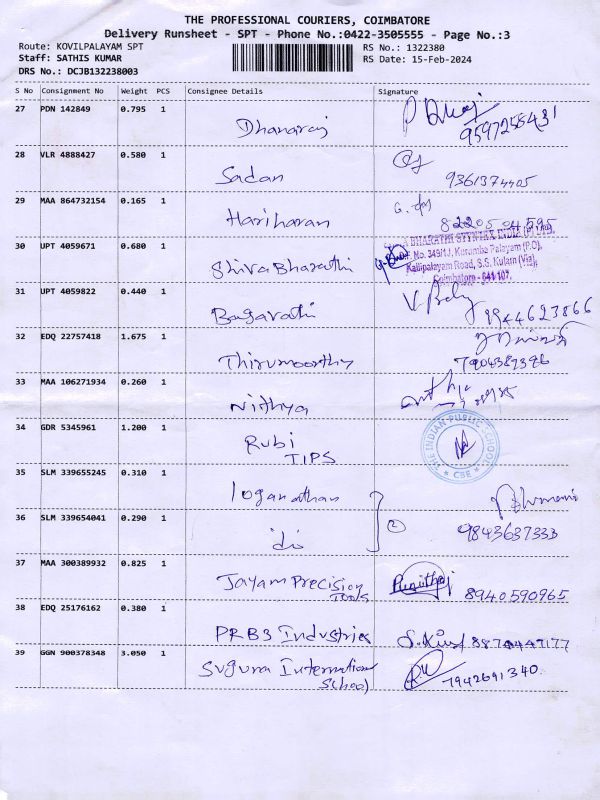 THE PROFESSIONAL COURIERS, COIMBATORE
Delivery Runsheet - SPT - Phone No.:0422-3505555 - Page No.:3
Route: KOVILPALAYAM SPT
Staff: SATHIS KUMAR
DRS No.: DCJB132238003
RS No.: 1322380
RS Date: 15-Feb-2024
S No Consignment No Weight PCS Consignee Details Signature
27 PDN 142849 0.795 1 Dhanaraj 9597258431
28 VLR 4888427 0.580 1 Sadan 9361374405
29 MAA 864732154 0.165 1 Hariharan 8220504595
30 UPT 4059671 0.680 1 Shiva Bharathi
BHARATH INDIA (P) Ltd.,
No. 349/1J, Kurumba Palayam (P.O),
Kalipalayam Road, S.S. Kulam (Via),
Coimbatore - 641 107.
31 UPT 4059822 0.440 1 Bagarathi 9944623866
32 EDQ 22757418 1.675 1 Thirumoorthy 7904387396
33 MAA 106271934 0.260 1 Nithya
34 GDR 5345961 1.200 1 Rubi
TIPS
THE INDIAN PUBLIC SCHOOL
CBSE
35 SLM 339655245 0.310 1 loganathan
36 SLM 339654041 0.290 1 do 2 9843637333
37 MAA 300389932 0.825 1 Jayam Precision
Tools 8940590965
38 EDQ 25176162 0.380 1 PRB3 Industries
39 GGN 900378348 3.050 1 Suguna International
School 7942691340